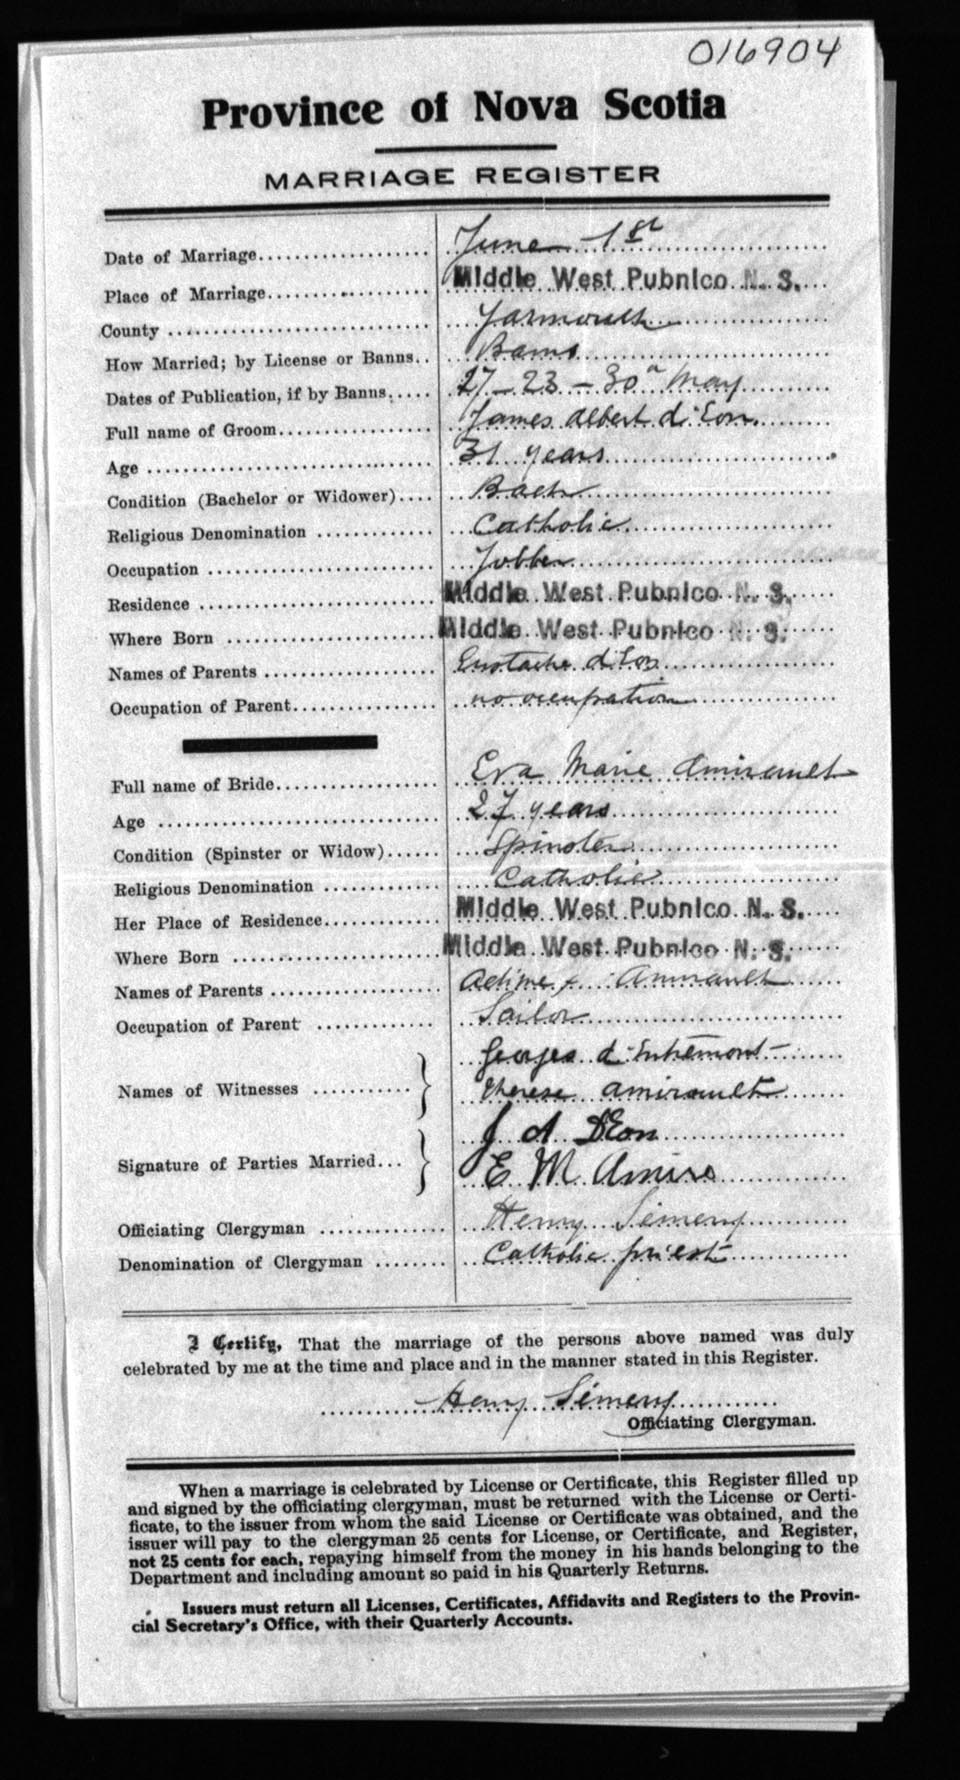 016904
Province of Nova Scotia
MARRIAGE REGISTER
Date of Marriage.................... June 1st
Place of Marriage.................... Middle West Pubnico N. S.
County .............................. Yarmouth
How Married; by License or Banns.. Banns
Dates of Publication, if by Banns..... 27 - 23 - 30th May
Full name of Groom.................. James Albert d'Eon
Age ................................. 31 years
Condition (Bachelor or Widower).... Bach
Religious Denomination ............. Catholic
Occupation .......................... Jobber
Residence ........................... Middle West Pubnico N. S.
Where Born ........................ Middle West Pubnico N. S.
Names of Parents .................... Eustache d'Eon
Occupation of Parent................. no occupation
Full name of Bride................... Eva Marie Amirault
Age ................................. 27 years
Condition (Spinster or Widow)...... Spinster
Religious Denomination ............. Catholic
Her Place of Residence.............. Middle West Pubnico N. S.
Where Born ........................ Middle West Pubnico N. S.
Names of Parents .................... Amirault
Occupation of Parent .............. Sailor
Georges d'Entremont
Names of Witnesses ........... } Therese Amirault
J A D'Eon
Signature of Parties Married... } E M Amiro
Officiating Clergyman ............... Henry Simeny
Denomination of Clergyman ........ Catholic priest
I Certify, That the marriage of the persons above named was duly
celebrated by me at the time and place and in the manner stated in this Register.
Henry Simeny
Officiating Clergyman.
When a marriage is celebrated by License or Certificate, this Register filled up
and signed by the officiating clergyman, must be returned with the License or Certi-
ficate, to the issuer from whom the said License or Certificate was obtained, and the
issuer will pay to the clergyman 25 cents for License, or Certificate, and Register,
not 25 cents for each, repaying himself from the money in his hands belonging to the
Department and including amount so paid in his Quarterly Returns.
Issuers must return all Licenses, Certificates, Affidavits and Registers to the Provin-
cial Secretary's Office, with their Quarterly Accounts.